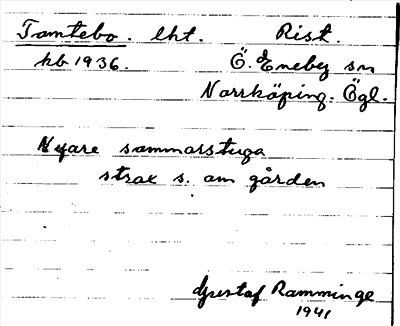 Tomtebo. lht. Rist.
kb 1936. Ö. Eneby sn
Norrköping. Ögl.
Nyare sommarstuga
strax s. om gården
Gustaf Ramminge
1941